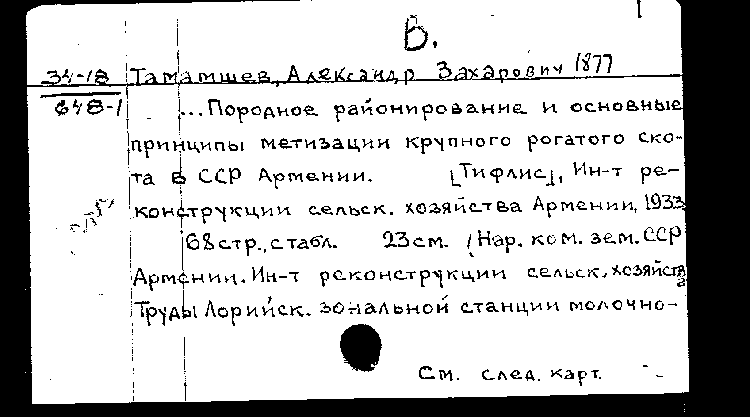 В.
34-18 Тамамшев, Александр Захарович 1877
648-1 ...Породное районирование и основные
принципы метизации крупного рогатого ско-
та в ССР Армении. [Тифлис], Ин-т ре-
конструкции сельск. хозяйства Армении, 1933
68 стр., с табл. 23 см. (Нар. ком. зем. ССР
Армении. Ин-т реконструкции сельск. хозяйства
Труды Лорийск. зональной станции молочно-
См. след. карт.